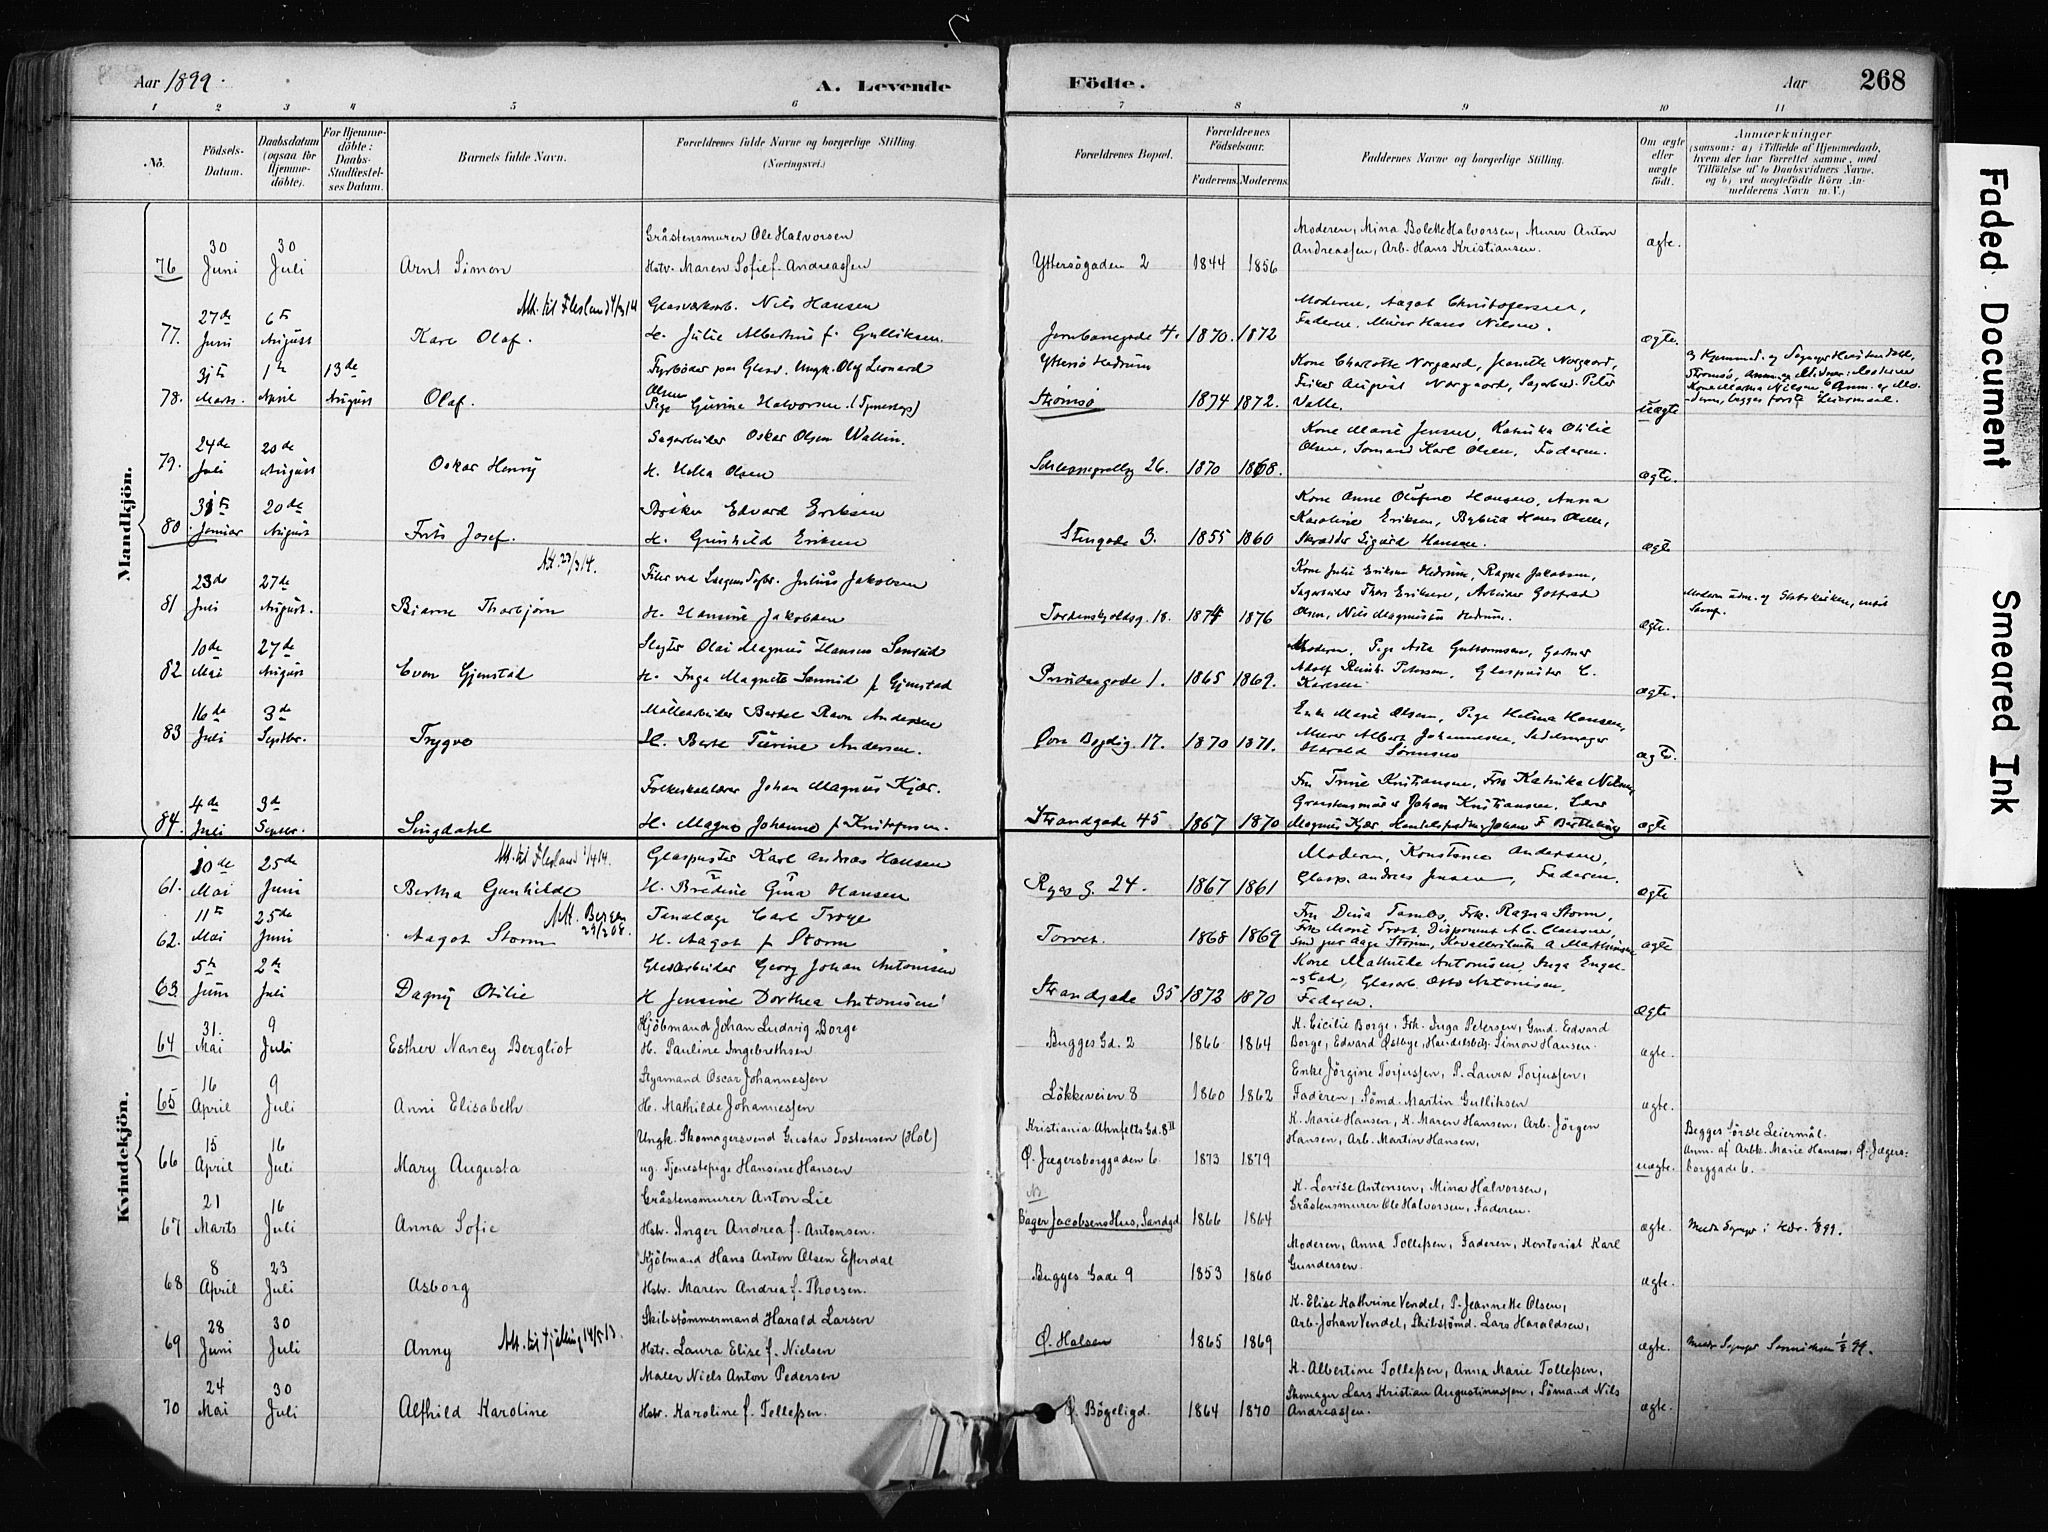 Aar 1899. A. Levende Födte. Aar 268
1 2 3 4 5 6 7 8 9 10 11
No. Födsels-Datum. Daabsdatum (ogsaa for Hjemme-döbte). For Hjemme-döbte: Daabs-Stadfæstel-ses Datum. Barnets fulde Navn. Forældrenes fulde Navne og borgerlige Stilling. (Næringsvei.) Forældrenes Bopæl. Forældrenes Födselsaar. Faderens. Moderens. Faddernes Navne og borgerlige Stilling. Om ægte eller uægte födt. Anmærkninger (saasom: a) i Tilfælde af Hjemmedaab, hvem der har forrettet samme, med Tilföielse af to Daabsvidners Navne, og b) ved uægtefödte Börn An-melderens Navn m. V.)
Mandkjön.
30 30 Gråstensmurer Ole Halvorsen Moderen, Mina Bolette Halvorsen, Murer Anton
76 Juni Juli Arnt Simon Hstr. Maren Sofie f. Andreassen Yttersögaden 2 1844 1856 Andreassen, Arb. Hans Kristiansen. ægte.
27de 6te Att. til Flesland Glasværksarb. Nils Hansen Moderen, Aagot Christofersen,
77. Juni August Karl Olaf. H. Julie Albertine f. Gulliksen. Jernbanegade 4. 1870. 1872 Faderen, Murer Hans Nilsen. ægte.
31te 1te 13de Fyrböder paa Glasv. Ungk. Olaf Leonard Yttersö Hedrum Kone Charlotte Norgaard, Jeanette Norgaard,
78. Marts April August Olaf. Olsen Pige Gurine Halvorsen (Tjenestep) Strömsö 1874 1872. August Norgaard, Sagarbeid. Peter Valle. uægte
24de 20de Sagarbeider Oskar Olsen Wallin. Kone Marie Jensen, Katrine Otilie
79. Juli August Oskar Henry H. Hella Olsen 26. 1870 1868. Olsen, Sömand Karl Olsen, Faderen. ægte.
31te 20de Edvard Eriksen Kone Anne Hansen, Anna
80 Januar August Frits Josef. H. Gunhild Eriksen Stengade 3. 1855 1860 Karoline Eriksen, Hans Olsen, Skrædder Sigurd Hansen. ægte
Att. 27/3 14.
23de 27de Filer ved Julius Jakobsen Kone Julie Eriksen Hedrum, Ragna Jakobsen,
81 Juli August. Bjarne Thorbjörn H. Hansine Jakobsen Tordenskjoldsg. 18. 1874 1876 Sagarbeider Thor Eriksen, Arbeider Gotfred Olsen, Nils Magnussen Hedrum. ægte. Moderen udm. af Statskirken,
10de 27de Slagter Olai Magnus Hansen Moderen, Pige Asta Guttormsen, Gartner
82 Mai August Even Gjenstad H. Inga Magnete f Gjenstad Prindsegade 1. 1865 1869. Adolf Petersen, Glaspuster C. Karlsen ægte.
16de 3de Möllearbeider Bertel Ravn Andersen Enke Marie Olsen, Pige Helma Hansen,
83 Juli Septbr. Trygve H. Berte Turine Andersen. 17. 1870 1871. Murer Albert Johannessen, Sadelmager Harald Sörensen ægte.
4de 3de Folkeskolelærer Johan Magnus Kjær. Fru Trine Kristiansen, Frk Katrika Nilsen,
84. Juli Septbr. Lingdahl H. Magna Johanne f Kristofersen. Strandgade 45 1867 1870 Graastensmurer Johan Kristiansen, Lærer Magnus Kjær, ægte
Kvindekjön.
10de 25de Att. til Flesland 1/4 14. Glaspuster Karl Andreas Hansen Moderen, Konstance Andersen,
61. Mai Juni Bertha Gunhilde H. Bredine Gina Hansen Ryes G. 24. 1867 1861 Glasp. Andreas Jensen, Faderen. ægte
11te 25de Att. Bergen 29/2 08. Tandlæge Carl Troye Fru Dina Tambs, Frk. Ragna Storm,
62. Mai Juni Aagot Storm H. Aagot f Storm Torvet. 1868 1869 Frk Marie Trost, Disponent A. C. Claussen, Stud jur Aage Storm, ægte
5te 2de Glasarbeider Georg Johan Antonisen Kone Mathilde Antonisen, Inga Engel-
63. Juni Juli Dagny Otilie H Jensine Dorthea Antonisen Strandgade 35 1872 1870 stad, Glasarb. Otto Antonisen, Faderen. ægte
31. 9 Kjöbmand Johan Ludvig Borge K. Cicilie Borge, Frk. Inga Petersen, Gmd. Edvard
64 Mai Juli Esther Nancy Bergliot H. Pauline Ingebrethsen Bugges Gd. 2 1866 1864 Borge, Edvard Östbye, Handelsbetj. Simon Hansen. ægte.
16 9 Styrmand Oscar Johannessen Enke Jörgine Torjussen, P. Laura Torjussen,
65 April Juli Anni Elisabeth H. Mathilde Johannessen Lökkeveien 8 1860 1862 Faderen, Sömd. Martin Gulliksen ægte.
15 16 Ungk. Skomagersvend Gustav Tostensen (Hol) Kristiania Ahnfelts Gd. 8 II K. Marie Hansen, K. Maren Hansen, Arb. Jörgen
66 April Juli Mary Augusta ug. Tjenestepige Hansine Hansen Ö. Jægersborggaden 6. 1873 1879 Hansen, Arb. Martin Hansen, uægte. Begges förste Leiermål. Anm. af Arbk. Marie Hansen, Ö. Jægers-borggade 6.
21 16 Gråstensmurer Anton Lie NB K. Lovise Antonsen, Mina Halvorsen,
67 Marts Juli Anna Sofie Hstr. Inger Andrea f. Antonsen. Bager Jacobsens Hus, Sandgd 1866 1864 Gråstensmurer Ole Halvorsen, Faderen. ægte.
8 23 Kjöbmand Hans Anton Olsen Efterdal Moderen, Anna Tollefsen, Faderen, Kontorist Karl
68 April Juli Asborg Hstr. Maren Andrea f. Thorsen. Bugges Gade 9 1853 1860 Gundersen. ægte.
28 30 Att. til Tjölling 14/5 13. Skibstömmermand Harald Larsen K. Elise Kathrine Vendel, P. Jeannette Olsen,
69 Juni Juli Anny Hstr. Laura Elise f. Nielsen Ö. Halsen 1865 1869 Arb. Johan Vendel, Skibstömd. Lars Haraldsen, ægte.
24 30 Maler Niels Anton Pedersen K. Albertine Tollefsen, Anna Marie Tollefsen,
70 Mai Juli Alfhild Karoline Hstr. Karoline f. Tollefsen. Ö. Bögeligd. 1864 1870 Skomager Lars Kristian Augustinussen, Sömand Nils Andreassen. ægte.
Faded Document
Smeared Ink